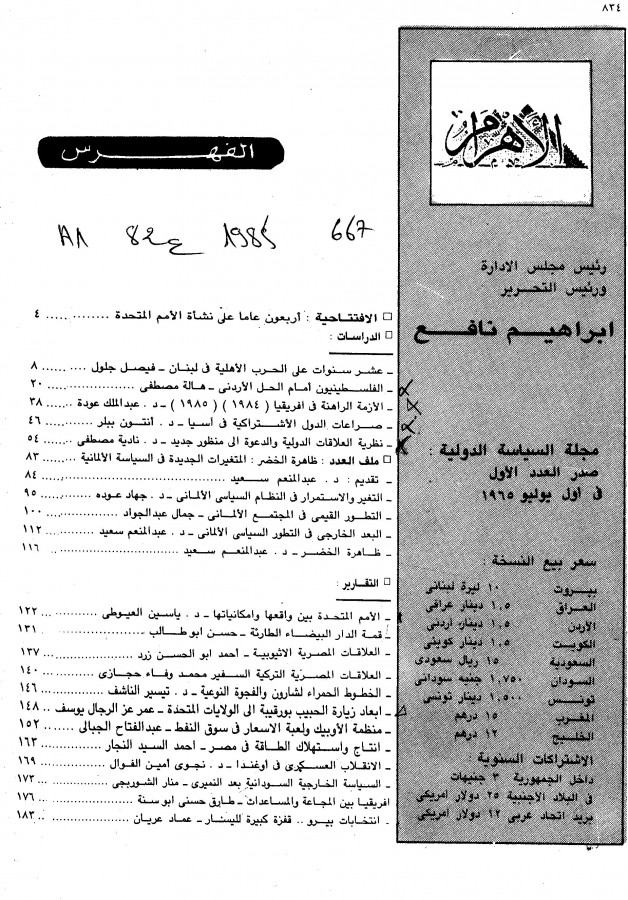 ٨٣٤
الأهرام
رئيس مجلس الادارة
ورئيس التحرير
ابراهيم نافع
مجلة السياسة الدولية :
صدر العدد الأول
فى أول يوليو ١٩٦٥
سعر بيع النسخة :
بيروت ١٠ ليرة لبنانى
العراق ١,٥ دينار عراقى
الأردن ١,٥ دينار أردنى
الكويت ١,٥ دينار كويتى
السعودية ١٥ ريال سعودى
السودان ١,٧٥٠ جنيه سودانى
تونس ١,٥٠٠ دينار تونسى
المغرب ١٥ درهم
الخليج ١٢ درهم
الاشتراكات السنوية :
داخل الجمهورية ٣ جنيهات
فى البلاد الأجنبية ٢٥ دولار أمريكى
بريد اتحاد عربى ١٢ دولار أمريكى
الفهرس
A1 82ع 1985 667
□ الافتتاحية : أربعون عاما على نشأة الأمم المتحدة ............. ٤
□ الدراسات :
ـ عشر سنوات على الحرب الأهلية فى لبنان ـ فيصل جلول .... ...... ٨
ـ الفلسطينيون أمام الحل الأردنى ـ هالة مصطفى .................. ٢٠
ـ الأزمة الراهنة فى افريقيا ( ١٩٨٤ ) ( ١٩٨٥ ) ـ د . عبدالملك عودة .. ..... ٣٨
ـ صراعات الدول الأشتراكية فى أسيا ـ د . انتون بيلر ............. ٤٦
ـ نظرية العلاقات الدولية والدعوة الى منظور جديد ـ د . نادية مصطفى ..... ٥٤
□ ملف العدد : ظاهرة الخضر : المتغيرات الجديدة فى السياسة الألمانية ... ...... ٨٣
ـ تقديم : د . عبدالمنعم سعيد ..................... ٨٤
ـ التغير والاستمرار فى النظام السياسى الألمانى ـ د . جهاد عوده ....... ٩٥
ـ التطور القيمى فى المجتمع الألمانى ـ جمال عبدالجواد ............ ١٠٠
ـ البعد الخارجى فى التطور السياسى الألمانى ـ د . عبدالمنعم سعيد ..... ١١٢
ـ ظاهرة الخضر ـ د . عبدالمنعم سعيد .. ............... ١١٦
□ التقارير :
ـ الأمم المتحدة بين واقعها وامكانياتها ـ د . ياسين العيوطى .......... ١٢٢
قمة الدار البيضاء الطارئة ـ حسن ابو طالب ................. ١٣١
ـ العلاقات المصرية الاثيوبية ـ احمد ابو الحسن زرد .............. ١٣٧
ـ العلاقات المصرية التركية السفير محمد وفاء حجازى ............ ١٤٠
ـ الخطوط الحمراء لشارون والفجوة النوعية ـ د . تيسير الناشف ...... ١٤٦
ـ ابعاد زيارة الحبيب بورقيبة الى الولايات المتحدة ـ عمر عز الرجال يوسف .. ١٤٨
ـ منظمة الأوبيك ولعبة الاسعار فى سوق النفط ـ عبدالفتاح الجبالى ....... ١٥٢
ـ انتاج واستهلاك الطاقة فى مصر ـ احمد السيد النجار ............ ١٦٣
ـ الانقلاب العسكرى فى أوغندا ـ د . نجوى أمين الفوال ............ ١٦٩
ـ السياسة الخارجية السودانية بعد النميرى ـ منار الشوربجى ......... ١٧٣
افريقيا بين المجاعة والمساعدات ـ طارق حسنى ابو سنة ........... ١٧٦
ـ انتخابات بيرو .. قفزة كبيرة لليسار ـ عماد عريان .............. ١٨٣